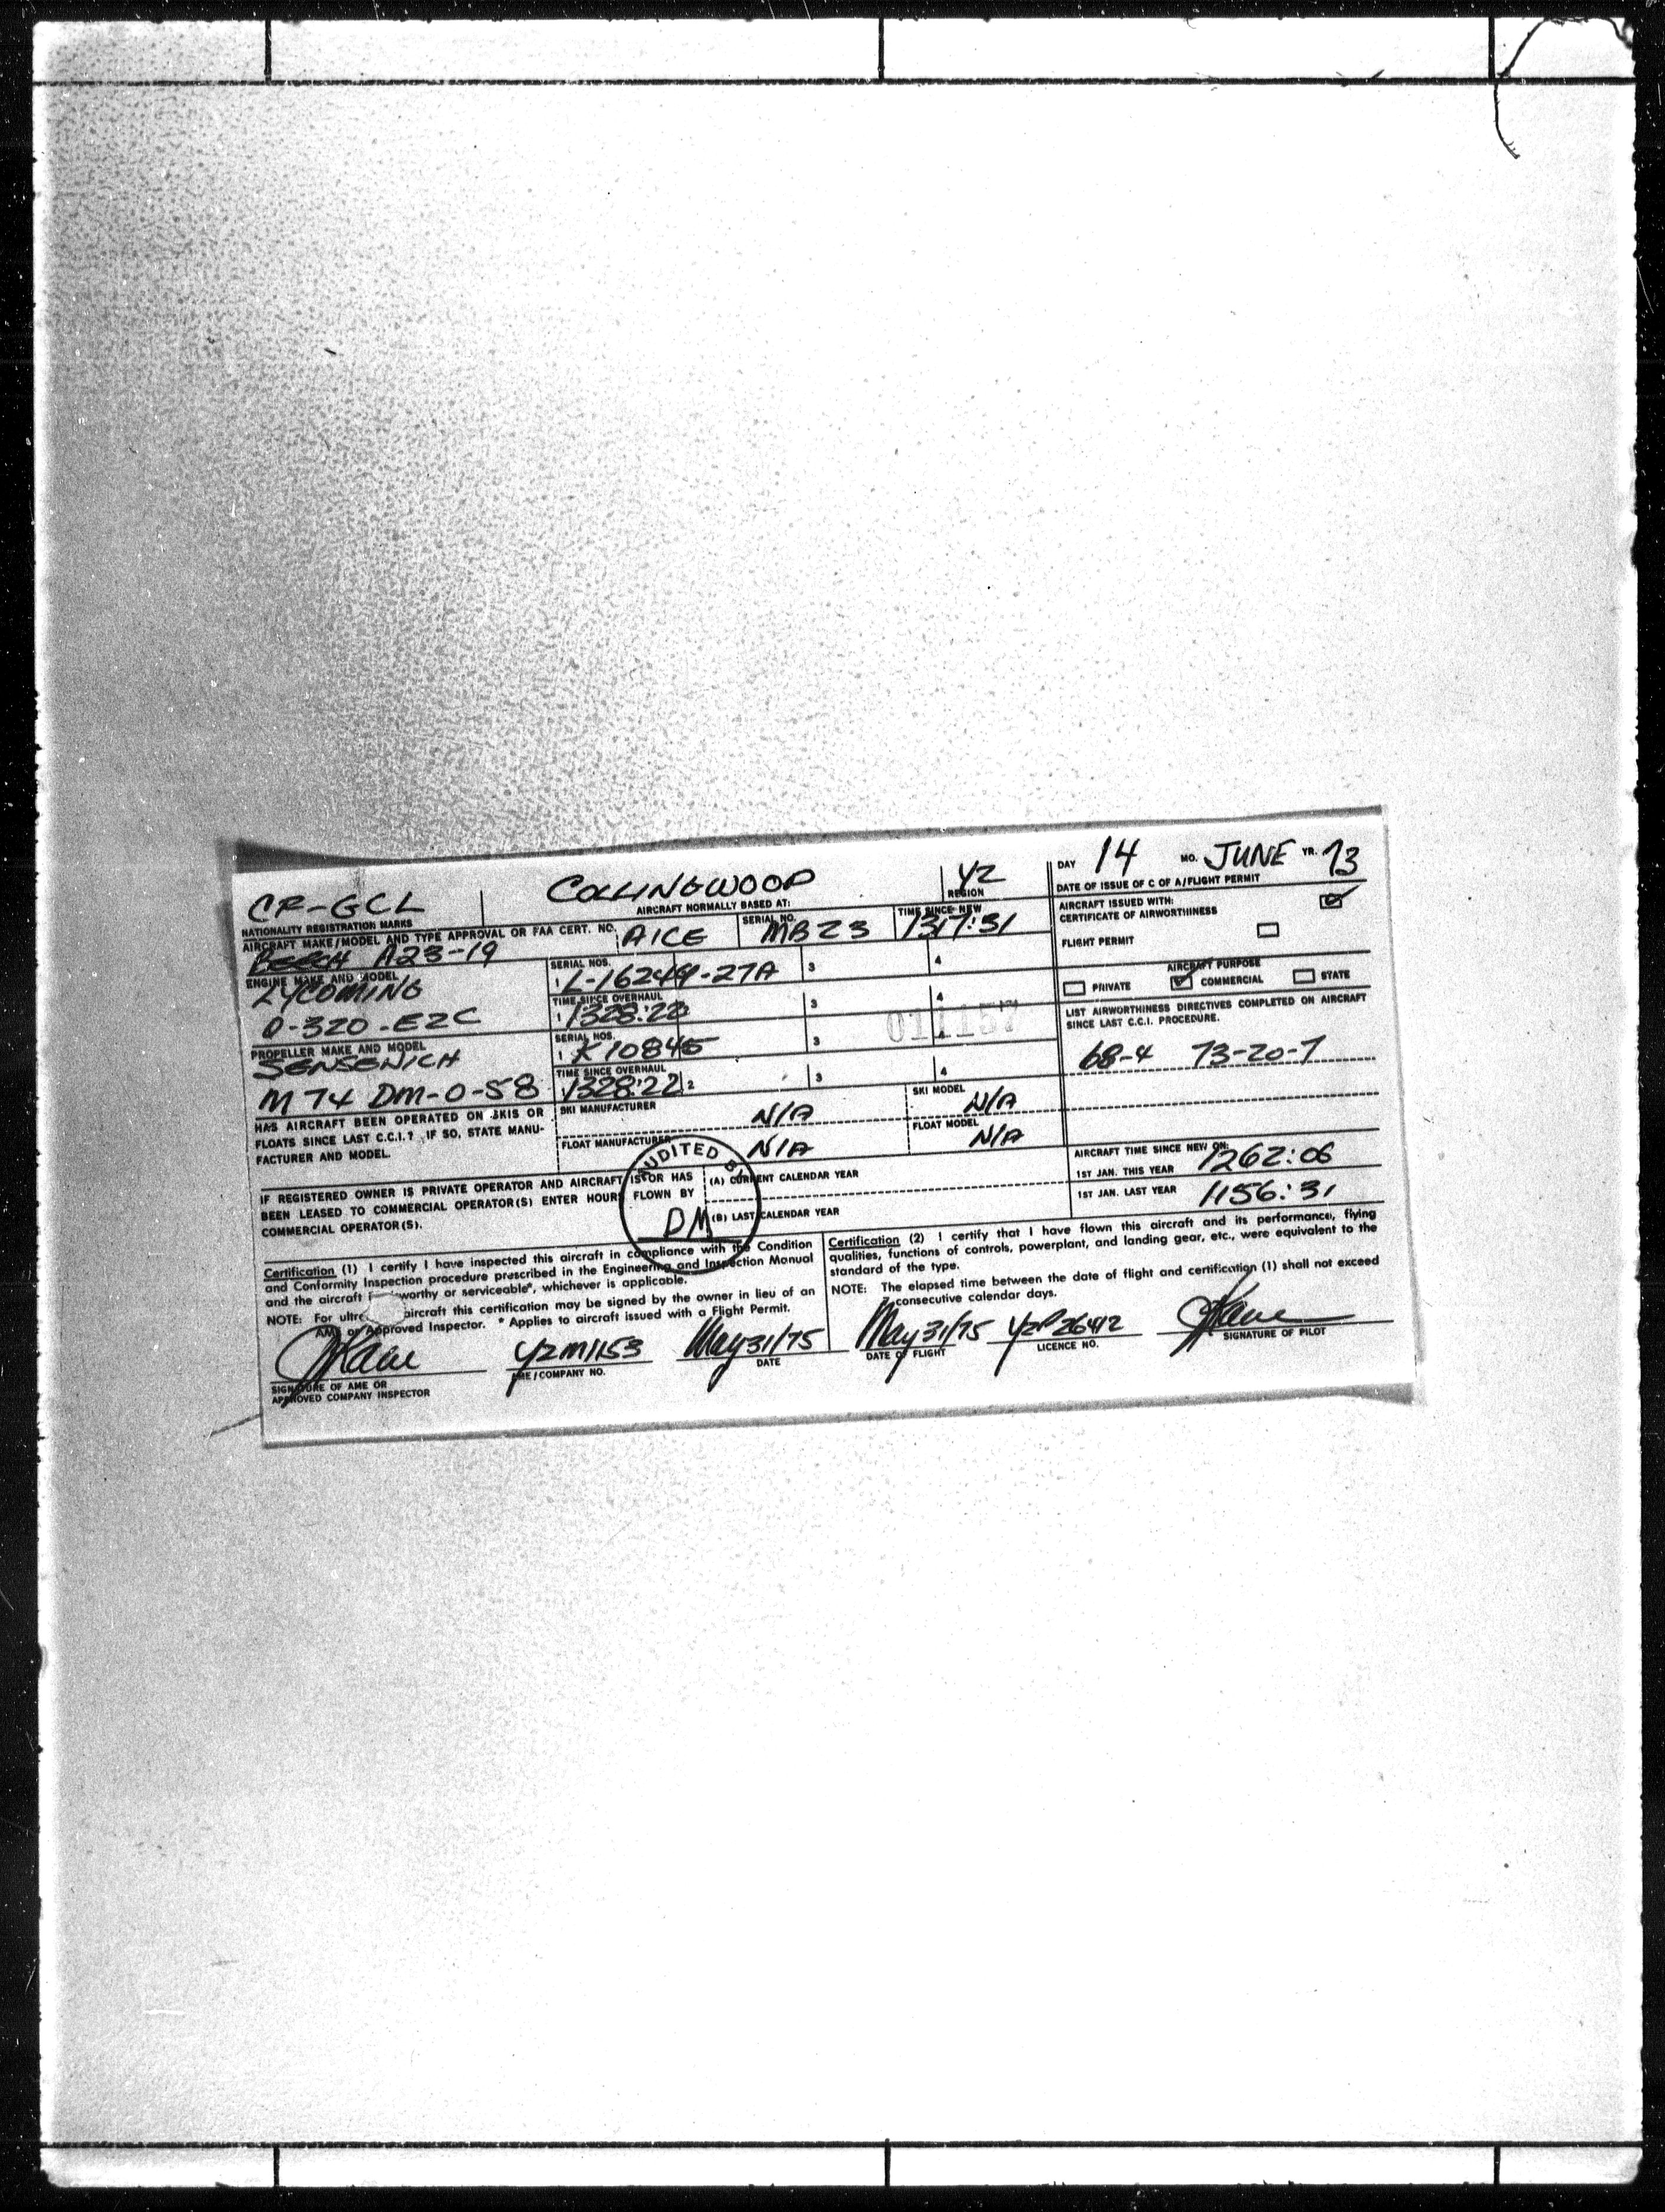 CF-GCL COLLINGWOOD YZ DAY 14 MO. JUNE YR. 73
NATIONALITY REGISTRATION MARKS AIRCRAFT NORMALLY BASED AT: REGION DATE OF ISSUE OF C OF A/FLIGHT PERMIT
AIRCRAFT MAKE/MODEL AND TYPE APPROVAL OR FAA CERT. NO. A1CE SERIAL NO. MB23 TIME SINCE NEW 1317:31
BEECH A23-19
AIRCRAFT ISSUED WITH:
CERTIFICATE OF AIRWORTHINESS
FLIGHT PERMIT
ENGINE MAKE AND MODEL SERIAL NOS. 3 4
LYCOMING 1 L-16249-27A
TIME SINCE OVERHAUL 3 4
O-320-E2C 1 1328:22
AIRCRAFT PURPOSE
PRIVATE COMMERCIAL STATE
PROPELLER MAKE AND MODEL SERIAL NOS. 3 4
SENSENICH 1 K10845
TIME SINCE OVERHAUL 3 4
M74 DM-0-58 1328:22 2
LIST AIRWORTHINESS DIRECTIVES COMPLETED ON AIRCRAFT
SINCE LAST C.C.I. PROCEDURE.
68-4 73-20-7
HAS AIRCRAFT BEEN OPERATED ON SKIS OR
FLOATS SINCE LAST C.C.I.? IF SO, STATE MANU-
FACTURER AND MODEL.
SKI MANUFACTURER N/A SKI MODEL N/A
FLOAT MANUFACTURER N/A FLOAT MODEL N/A
AIRCRAFT TIME SINCE NEW ON:
1ST JAN. THIS YEAR 1262:06
1ST JAN. LAST YEAR 1156:31
IF REGISTERED OWNER IS PRIVATE OPERATOR AND AIRCRAFT IS OR HAS
BEEN LEASED TO COMMERCIAL OPERATOR(S) ENTER HOURS FLOWN BY
COMMERCIAL OPERATOR(S).
(A) CURRENT CALENDAR YEAR
(B) LAST CALENDAR YEAR
AUDITED BY
DM
Certification (1) I certify I have inspected this aircraft in compliance with the Condition
and Conformity Inspection procedure prescribed in the Engineering and Inspection Manual
and the aircraft worthy or serviceable*, whichever is applicable.
NOTE: For aircraft this certification may be signed by the owner in lieu of an
AME or Approved Inspector. * Applies to aircraft issued with a Flight Permit.
Certification (2) I certify that I have flown this aircraft and its performance, flying
qualities, functions of controls, powerplant, and landing gear, etc., were equivalent to the
standard of the type.
NOTE: The elapsed time between the date of flight and certification (1) shall not exceed
consecutive calendar days.
YZM1153 May 31/75 May 31/75 YZP26412
SIGNATURE OF AME OR
APPROVED COMPANY INSPECTOR
AME/COMPANY NO. DATE DATE OF FLIGHT LICENCE NO. SIGNATURE OF PILOT